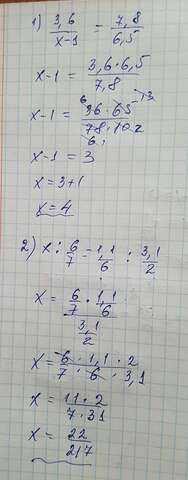 1) 3,6/(x-1) = 7,8/6,5
x-1 = (3,6·6,5)/7,8
x-1 = (36·65)/(78·10)
x-1 = 3
x = 3+1
x = 4
2) x : 6/7 = 1,1/6 : 3,1/2
x = (6/7 · 1,1/6)/(3,1/2)
x = (6·1,1·2)/(7·6·3,1)
x = (11·2)/(7·31)
x = 22/217